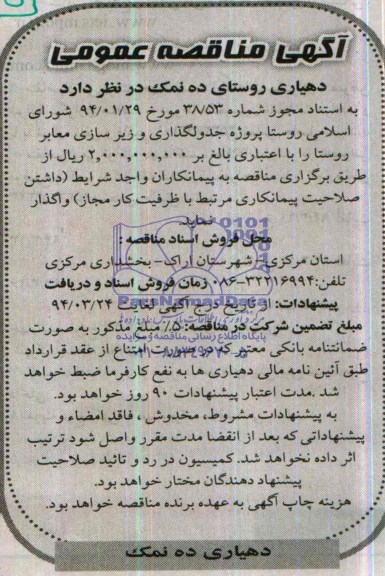 آگهی مناقصه عمومی
دهیاری روستای ده نمک در نظر دارد
به استناد مجوز شماره ۳۸/۵۳ مورخ ۹۴/۰۱/۲۹ شورای
اسلامی روستا پروژه جدولگذاری و زیر سازی معابر
روستا را با اعتباری بالغ بر ۲,۰۰۰,۰۰۰,۰۰۰ ریال از
طریق برگزاری مناقصه به پیمانکاران واجد شرایط (داشتن
صلاحیت پیمانکاری مرتبط با ظرفیت کار مجاز) واگذار
نماید.
محل فروش اسناد مناقصه :
استان مرکزی- شهرستان اراک- بخشداری مرکزی
تلفن:۳۲۲۱۶۹۹۴-۰۸۶ زمان فروش اسناد و دریافت
پیشنهادات: از تاریخ درج آگهی لغایت ۹۴/۰۳/۲۴
مبلغ تضمین شرکت در مناقصه: ۵٪ مبلغ مذکور به صورت
ضمانتنامه بانکی معتبر که در صورت امتناع از عقد قرارداد
طبق آئین نامه مالی دهیاری ها به نفع کارفرما ضبط خواهد
شد .مدت اعتبار پیشنهادات ۹۰ روز خواهد بود.
به پیشنهادات مشروط، مخدوش ، فاقد امضاء و
پیشنهاداتی که بعد از انقضا مدت مقرر واصل شود ترتیب
اثر داده نخواهد شد. کمیسیون در رد و تائید صلاحیت
پیشنهاد دهندگان مختار خواهد بود.
هزینه چاپ آگهی به عهده برنده مناقصه خواهد بود.
دهیاری ده نمک